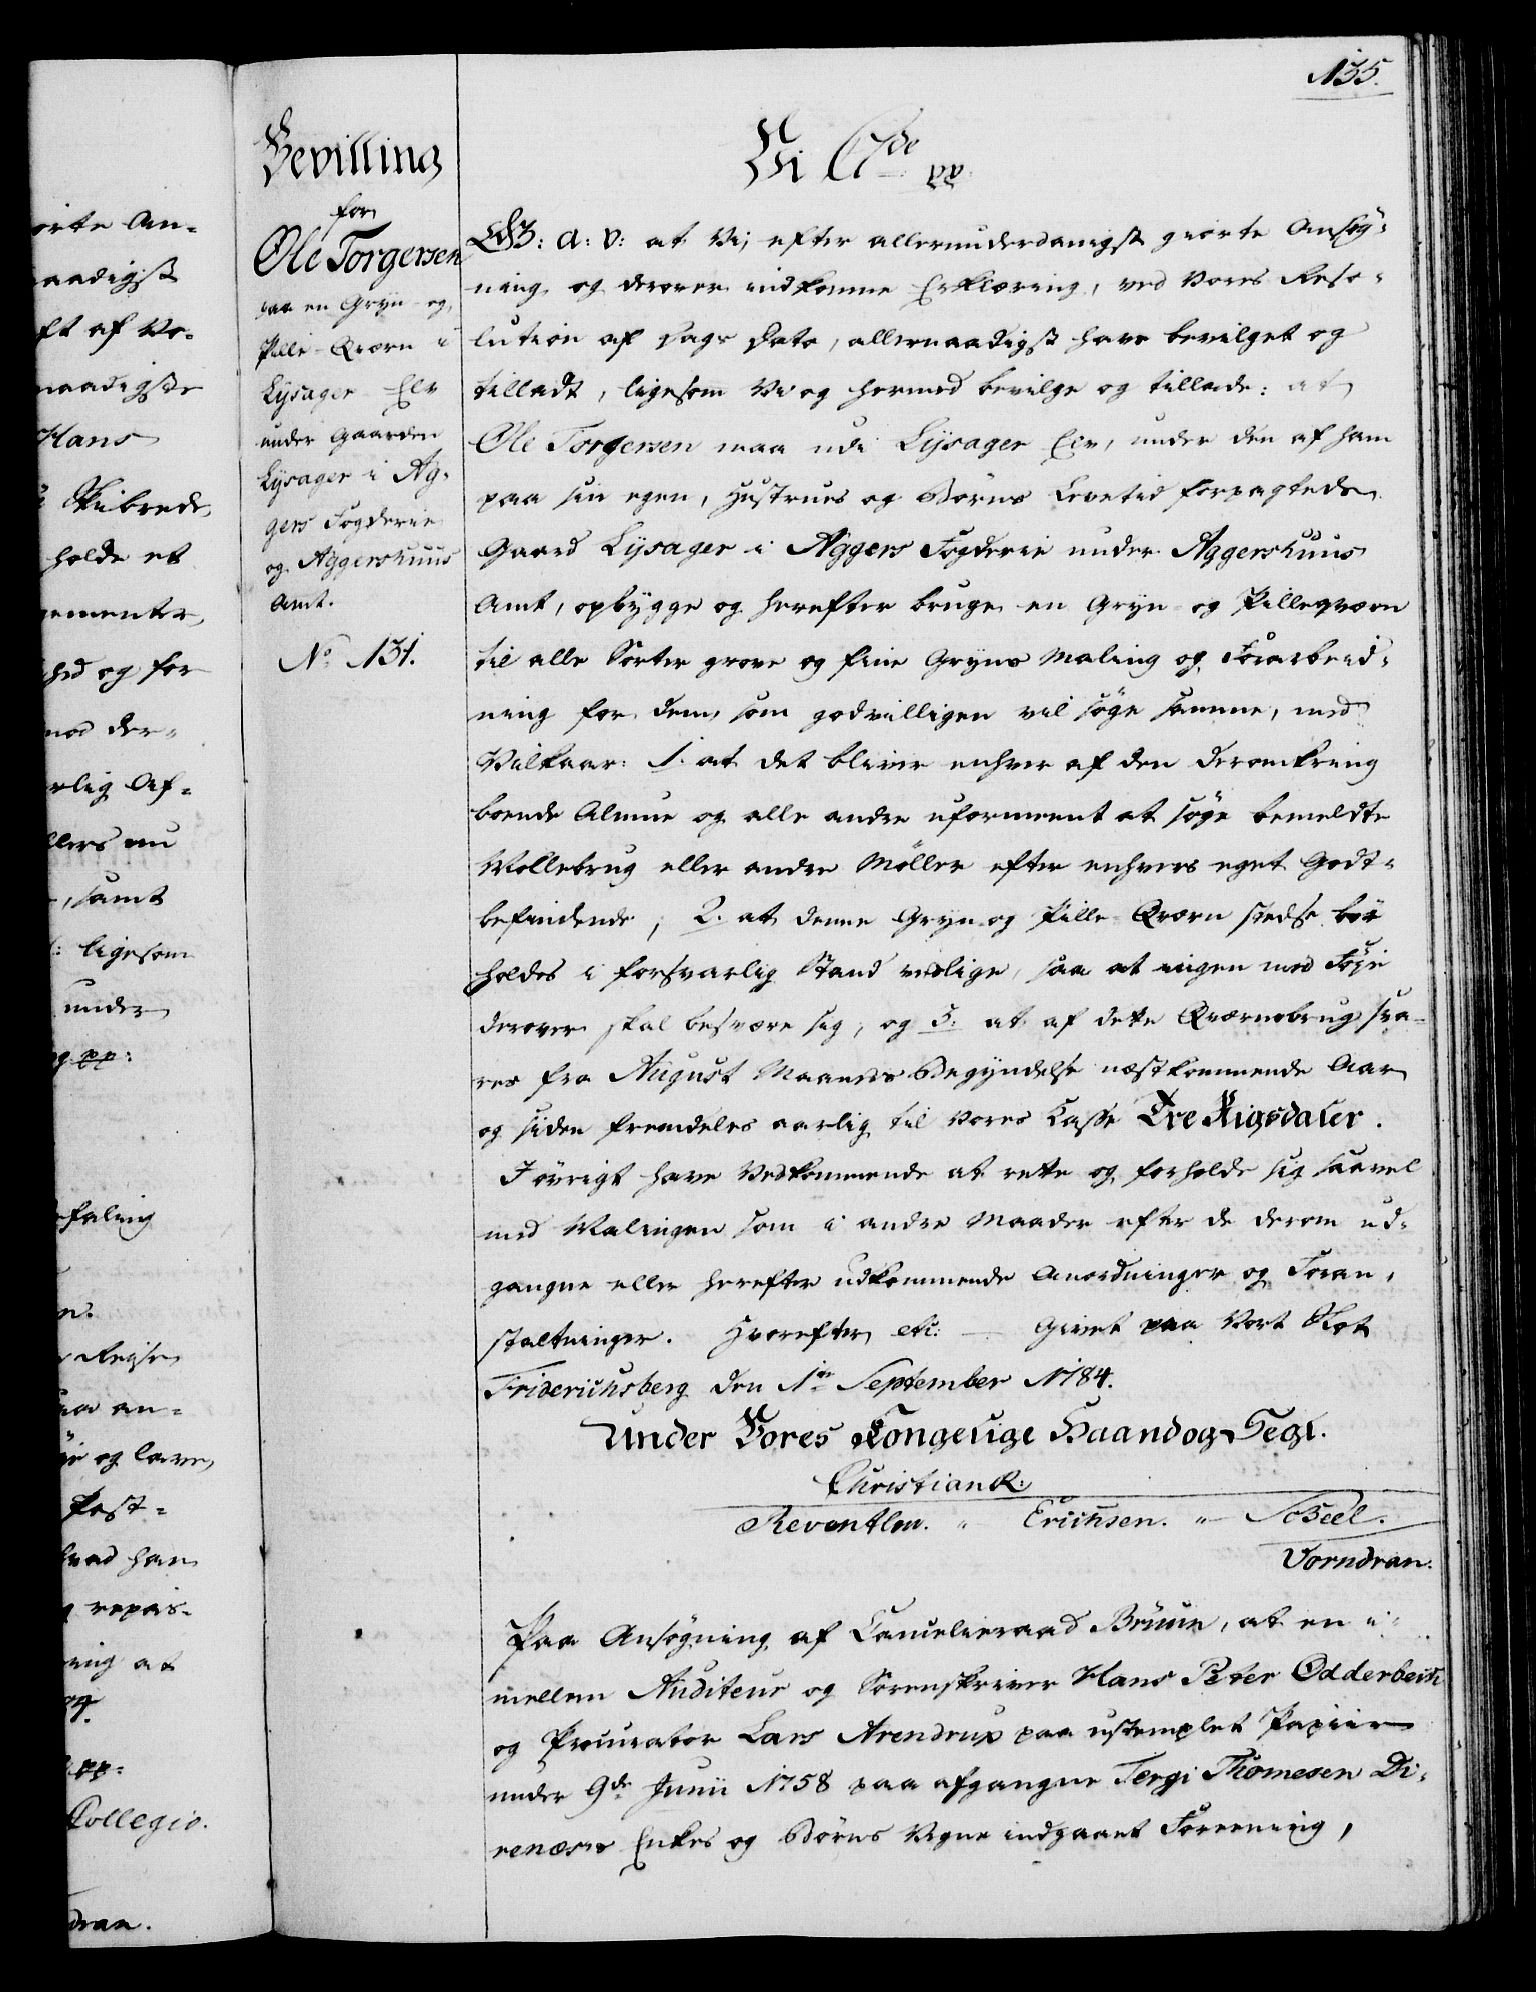 135.
Bevilling
for
Ole Torgersen
paa en Gryn- og
Pille-Qværn i
Lysager Elv
under Gaarden
Lysager i Ag-
gers Fogderie
og Aggershuus
Amt.
No. 131.
Vi C 7de pp.
G: a: v: at Vi, efter allerunderdanigst giorte Ansøg-
ning og derover indkomne Erklæring, ved Vores Reso-
lution af Dags Dato, allernaadigst have bevilget og
tilladt, ligesom Vi og hermed bevilge og tillade: at
Ole Torgersen maa udi Lysager Elv, under den af ham
paa sin egen, Hustrues og Børns Levetid forpagtede
Gaard Lysager i Aggers Fogderie under Aggershuus
Amt, opbygge og herefter bruge en Gryn- og Pilleqværn
til alle Sorter grove og fine Gryns Maling og Forarbeid-
ning for dem, som godvilligen vil søge samme, med
Vilkaar: 1. at det bliver enhver af den deromkring
boende Almue og alle andre uformeent at søge bemeldte
Møllebrug eller andre Møller efter enhvers eget Godt-
befindende, 2. at denne Gryn- og Pille-Qværn stedse bør
holdes i forsvarlig Stand vedlige, saa at ingen med Føje
derover skal besvære sig, og 3. at af dette Qværnebrug sva-
res fra August Maaneds Begyndelse næstkommende Aar
og siden fremdeles aarlig til Vores Casse Tre Rigsdaler.
I øvrigt have Vedkommende at rette og forholde sig saavel
med Malingen som i andre Maader efter de derom ud-
gangne eller herefter udkommende Anordninger og Foran-
staltninger. Hvorefter etc: — Givet paa Vort Slot
Friderichsberg den 1te September 1784.
Under Vores Kongelige Haand og Segl.
Christian R.
Reventlow. " Erichsen. " Scheel.
Vorndran.
Paa Ansøgning af Cancelieraad Bruun, at en i-
mellem Auditeur og Sorenskriver Hans Peter Odderbech
og Procurator Lars Arendrup paa ustemplet Papiir
under 9de Junii 1758 paa afgangne Tergi Thomesen Di-
renæses Enkes og Børns Vegne indgaaet Foreening,